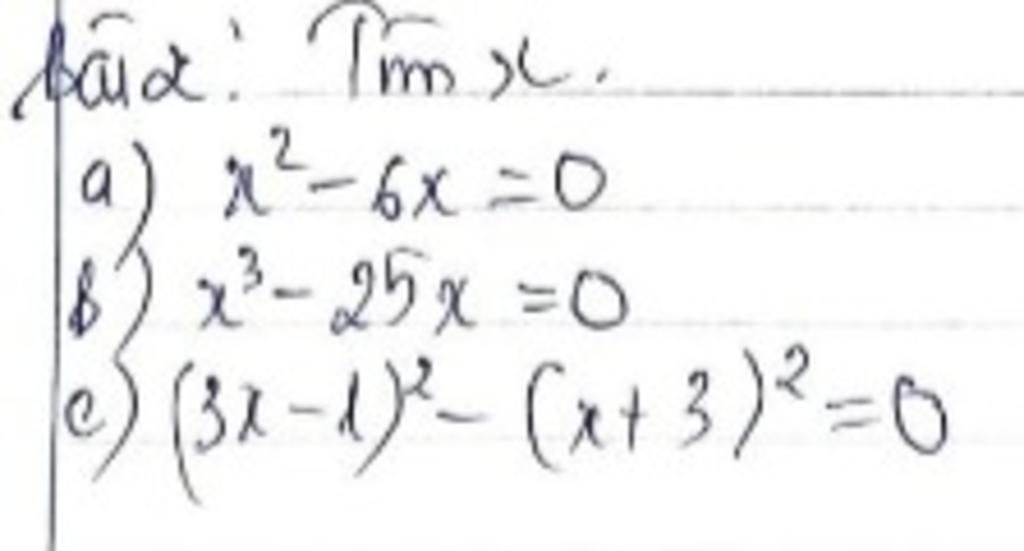 bài 2: Tìm x.
a) x² - 6x = 0
b) x³ - 25x = 0
c) (3x - 1)² - (x + 3)² = 0